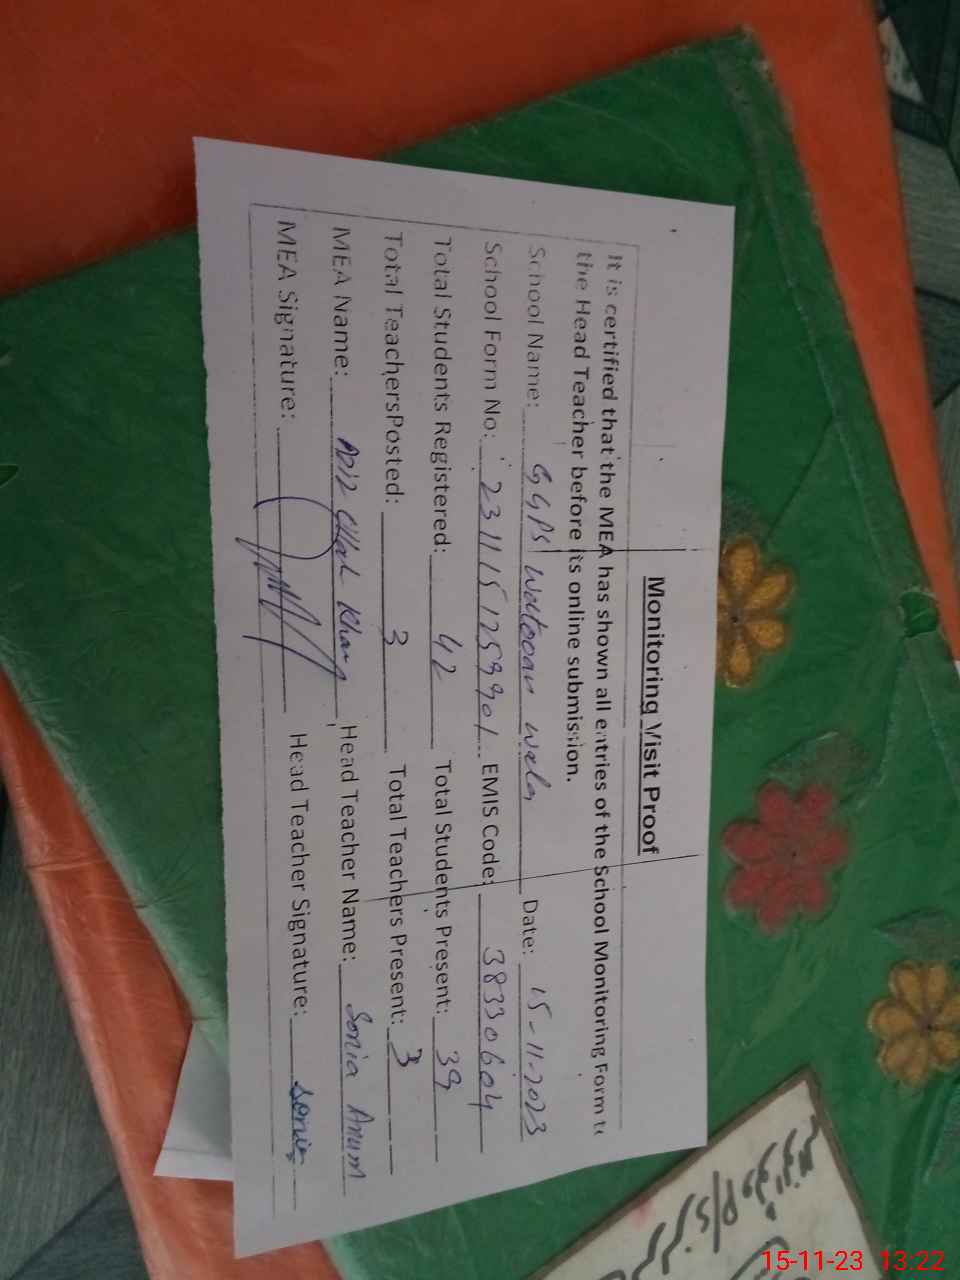 Monitoring Visit Proof
It is certified that the MEA has shown all entries of the School Monitoring Form to
the Head Teacher before its online submission.
School Name: GGPS Wattooan Wala Date: 15-11-2023
School Form No: 23111512599901 EMIS Code: 38330604
Total Students Registered: 42 Total Students Present: 39
Total TeachersPosted: 3 Total Teachers Present: 3
MEA Name: Khan Head Teacher Name: Sonia Anum
MEA Signature: Head Teacher Signature: Sonia
15-11-23 13:22